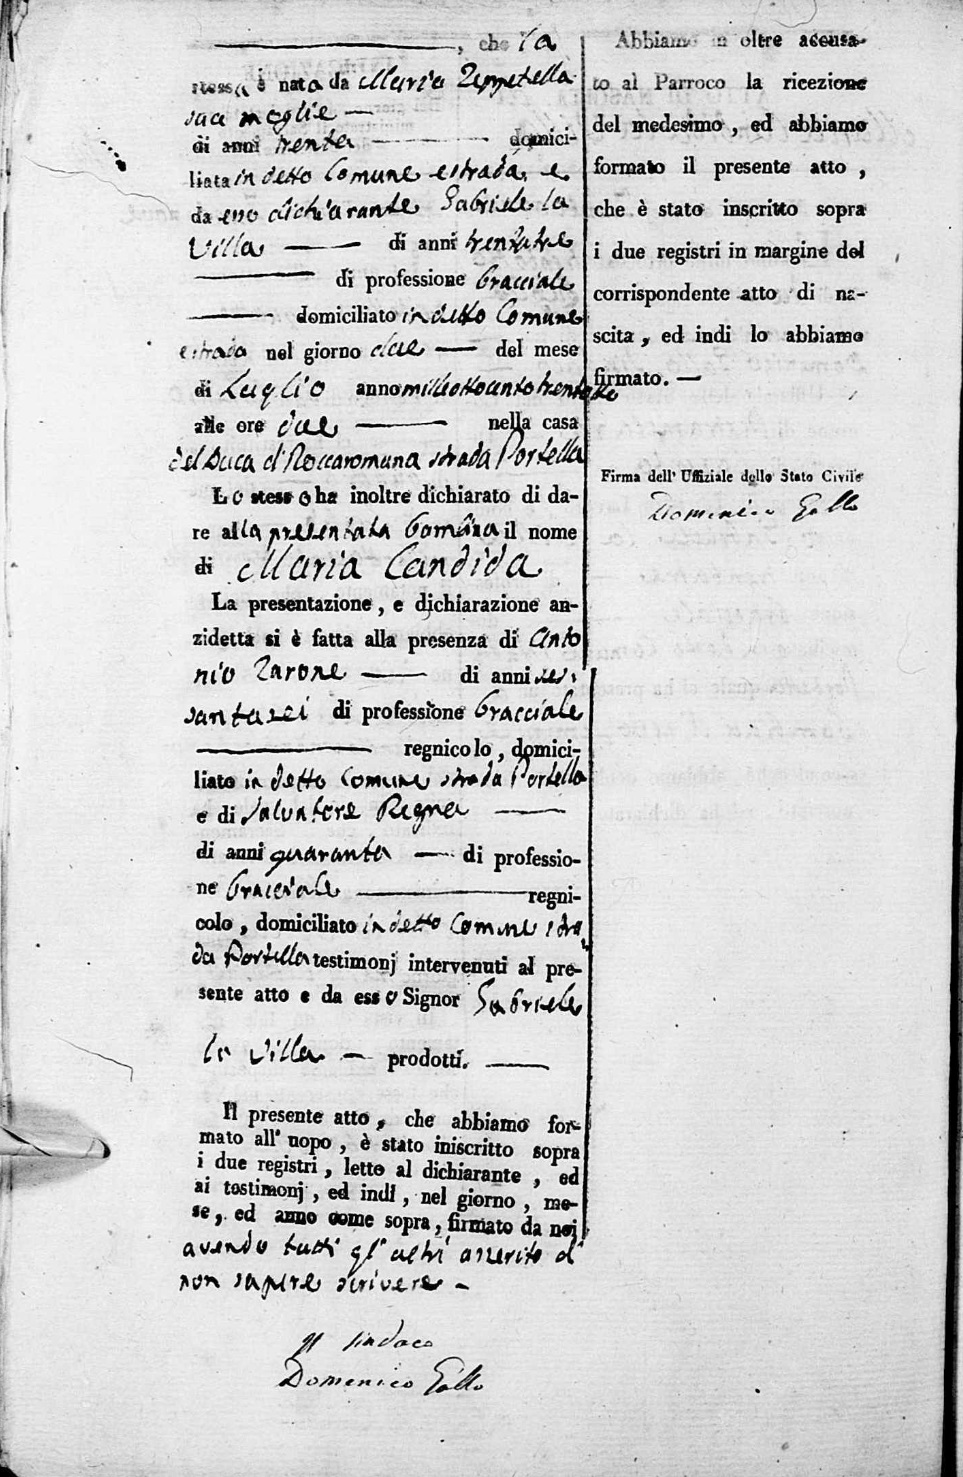 , che la
stessa è nata da Maria Zeppetella
sua moglie —
di anni trenta — domici-
liata in detto Comune e strada, e
da esso dichiarante Gabriele la
Villa — di anni trentatre
— di professione bracciale
— domiciliato in detto Comune
e strada nel giorno due — del mese
di Luglio anno milleottocento
alle ore due — nella casa
del Duca di Roccaromana strada Portella
Lo stesso ha inoltre dichiarato di da-
re alla presentata bambina il nome
di Maria Candida
La presentazione, e dichiarazione an-
zidetta si è fatta alla presenza di Anto
nio Zarone — di anni ses-
santasei di professione bracciale
— regnicolo, domici-
liato in detto Comune strada Portella
e di Salvatore Regna —
di anni quaranta — di professio-
ne bracciale — regni-
colo, domiciliato in detto Comune stra,
da Portella testimonj intervenuti al pre-
sente atto e da esso Signor Gabriele
la Villa — prodotti. —
Il presente atto, che abbiamo for-
mato all' uopo, è stato iniscritto sopra
i due registri, letto al dichiarante, ed
ai testimonj, ed indi, nel giorno, me-
se, ed anno come sopra, firmato da noi
avendo tutti gl' altri asserito di
non sapere scrivere —
Il Sindaco
Domenico Gallo
Abbiamo in oltre accusa-
to al Parroco la ricezione
del medesimo, ed abbiamo
formato il presente atto,
che è stato inscritto sopra
i due registri in margine del
corrispondente atto di na-
scita, ed indi lo abbiamo
firmato. —
Firma dell' Uffiziale dello Stato Civile
Domenico Gallo